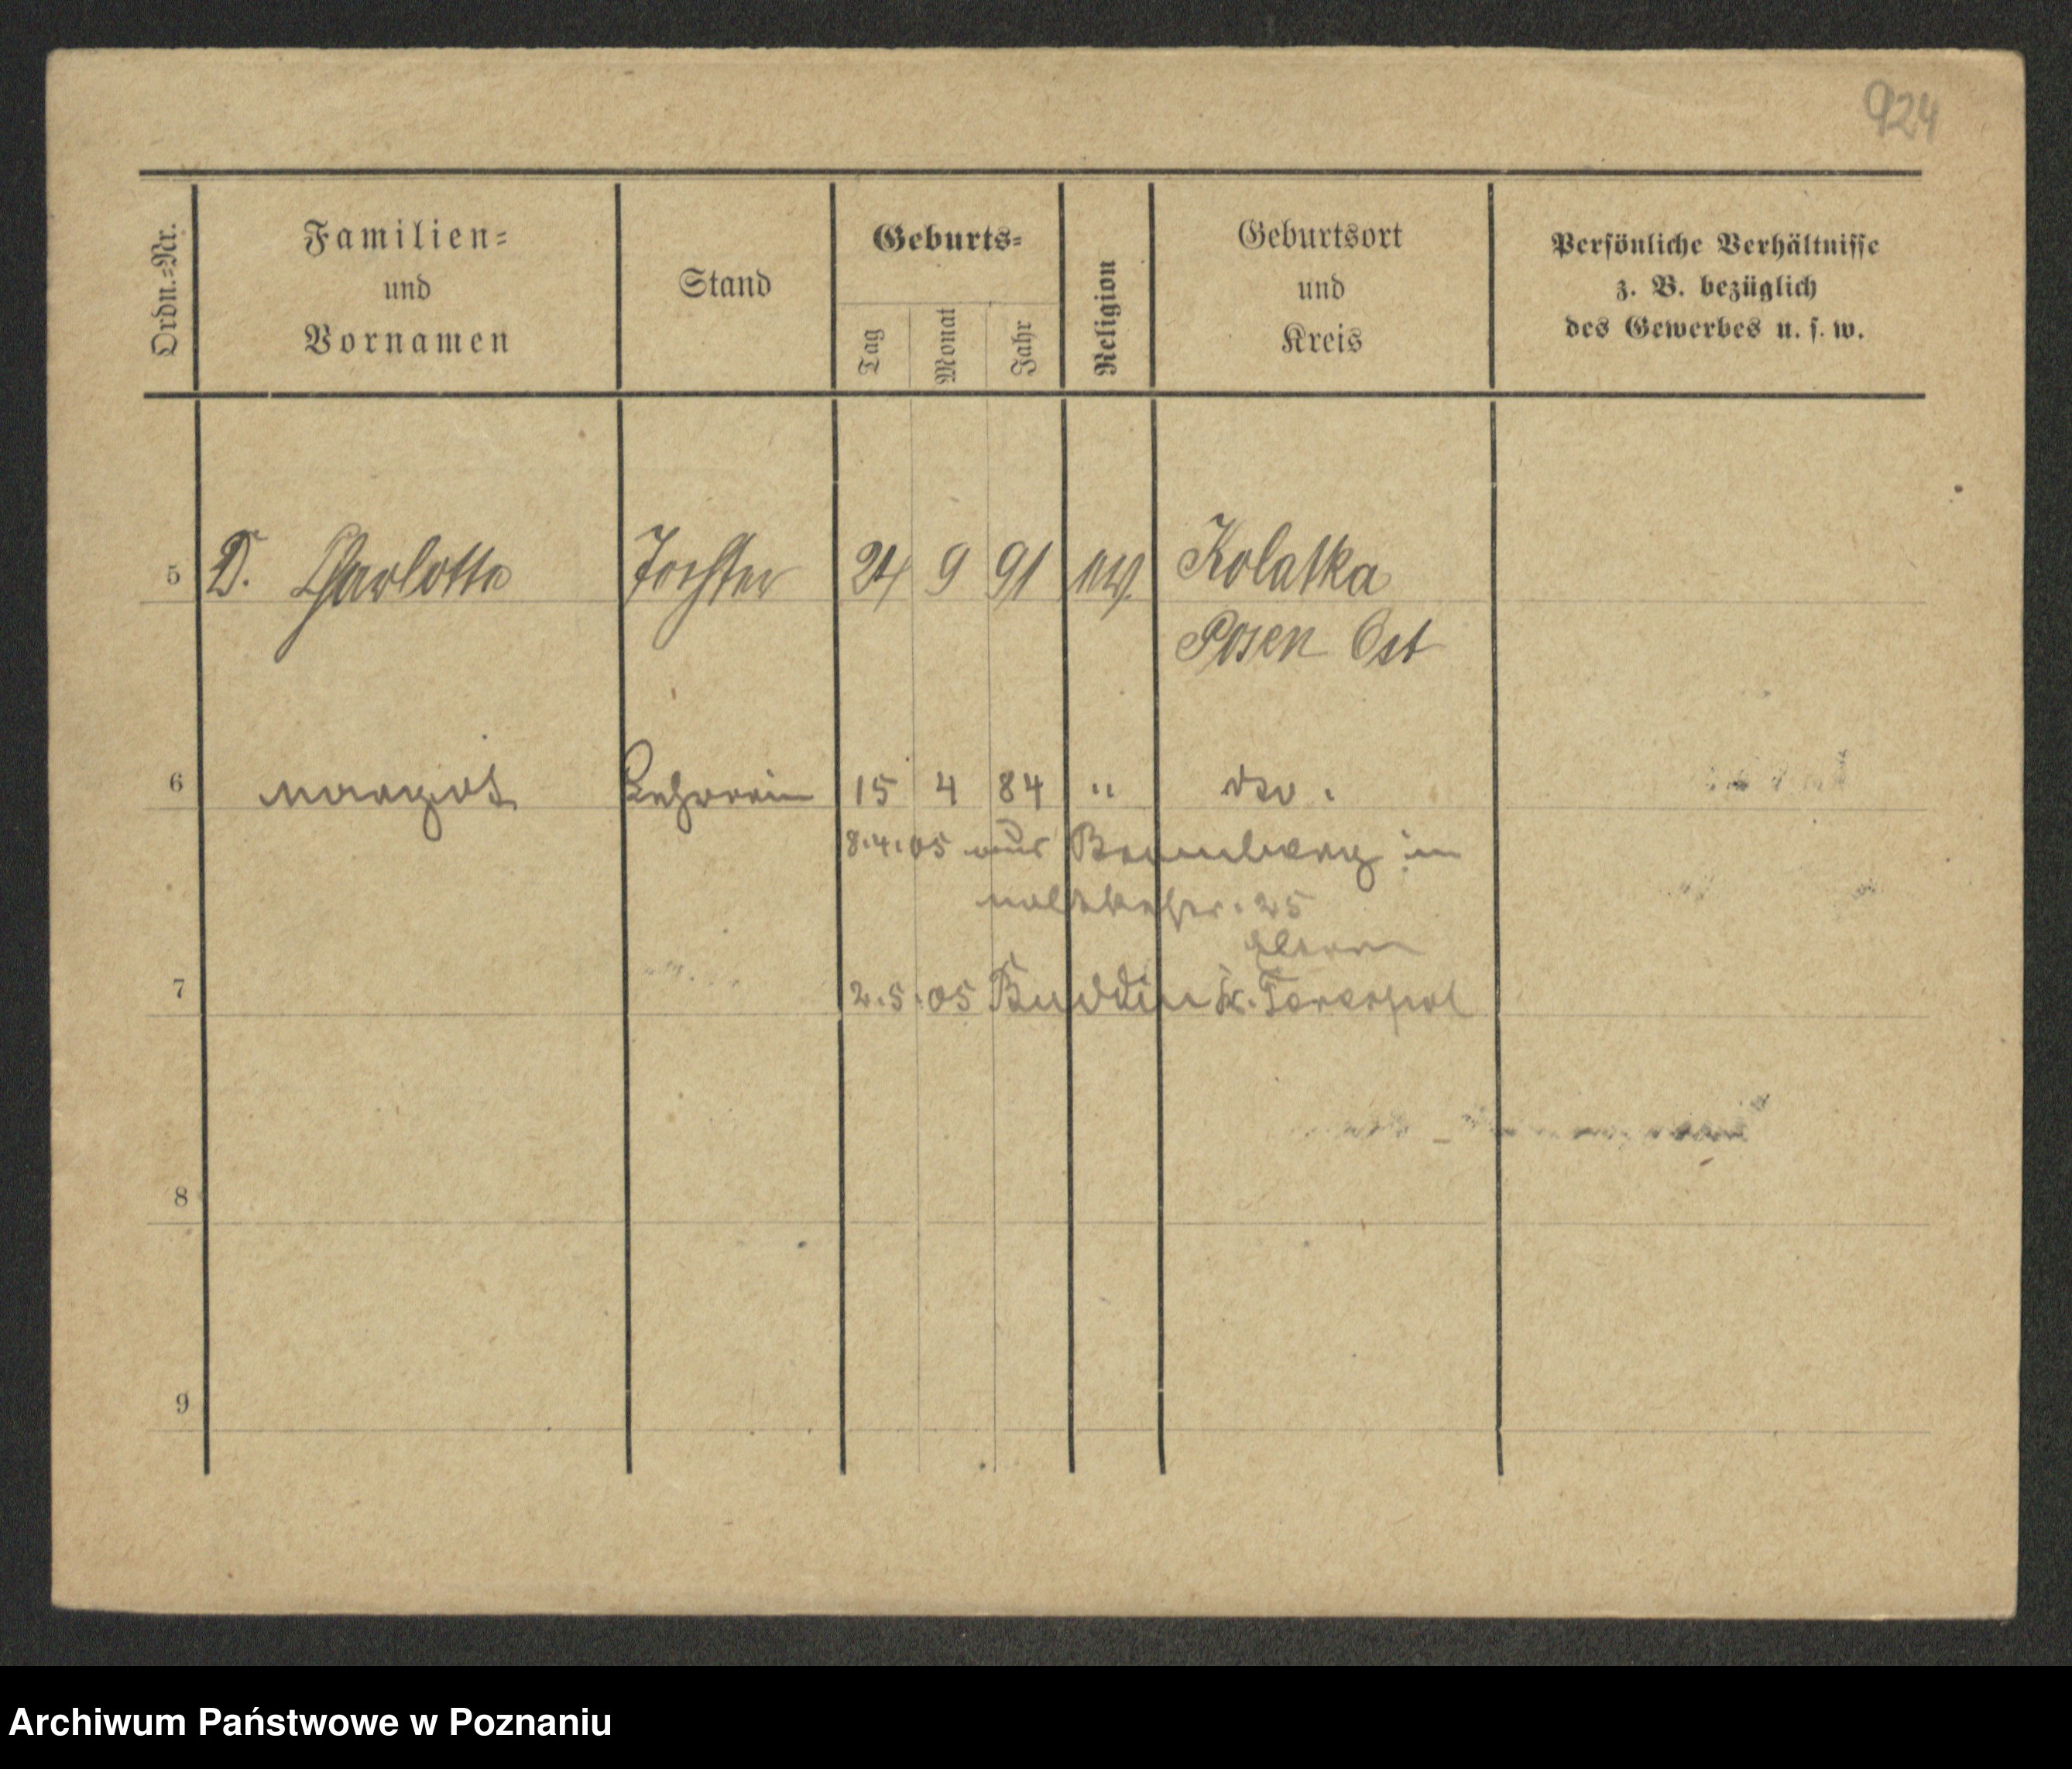 924
Ordn.=Nr.
Familien=
und
Vornamen
Stand
Geburts=
Tag
Monat
Jahr
Religion
Geburtsort
und
Kreis
Persönliche Verhältnisse
z. B. bezüglich
des Gewerbes u. s. w.
5 D. Charlotte Tochter 24 9 91 ev. Kolatka
Posen Ost
6 Margot Lehrerin 15 4 84 " do.
8.4.05 aus Bromberg in
25
Eltern
7 2.5.05 Buddin
8
9
Archiwum Państwowe w Poznaniu